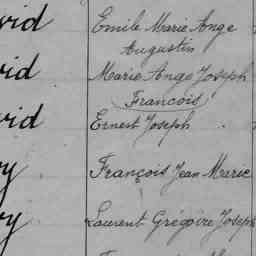 vid Emile Marie Ange
Augustin
vid Marie Ange Joseph
(François)
vid Ernest Joseph
y François Jean Marie
y Laurent Grégoire Joseph